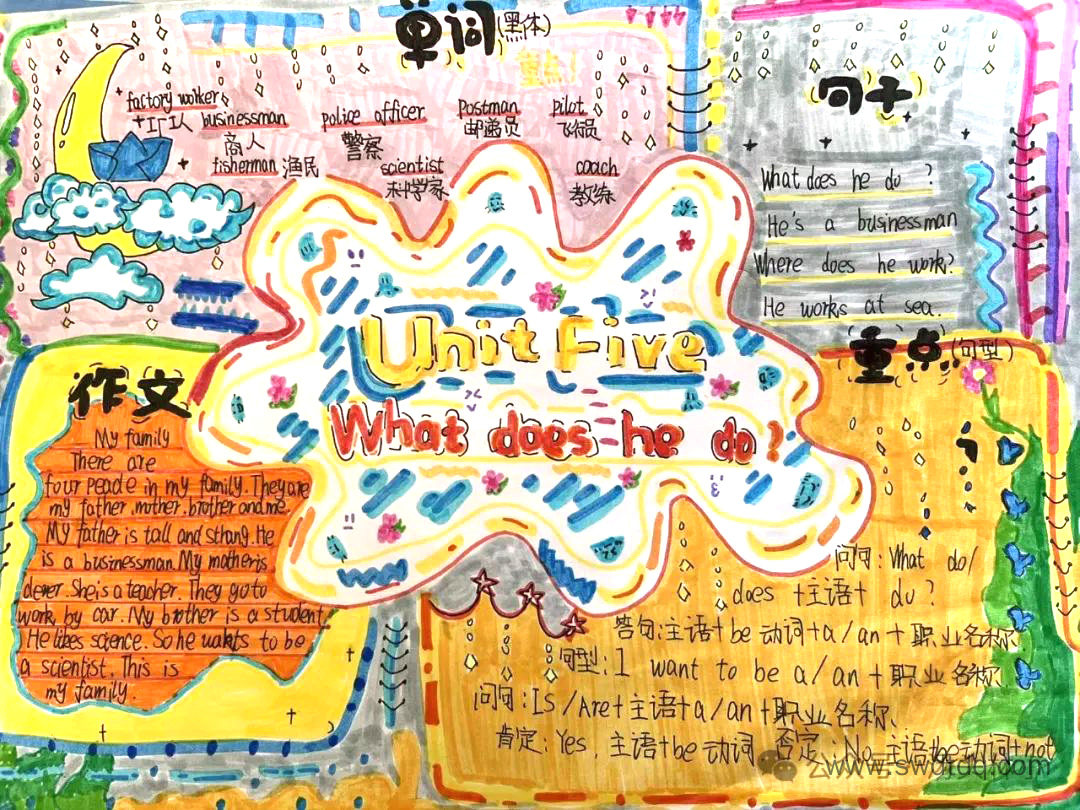 单词(黑体)
重点!
factory worker
工厂工人
businessman
商人
police officer
警察
postman
邮递员
pilot
飞行员
fisherman 渔民
scientist
科学家
coach
教练
句子
What does he do ?
He's a businessman
Where does he work?
He works at sea.
Unit Five
What does he do?
作文
My family
There are
four peade in my family. They are
my father.mother.brother and me.
My father is tall and sthang. He
is a businessman. My mother is
dever. She is a teacher. They go to
work by car. My brother is a student.
He likes science. So he wants to be
a scientist. This is
my family.
重点(句型)
问句: What do/
does +主语+ do ?
答句:主语+be 动词+a/an+职业名称
句型: I want to be a/an+职业名称
问句: Is/Are+主语+a/an+职业名称
肯定: Yes, 主语+be 动词 否定: No 主语+be动词+not
www.swdfdq.com